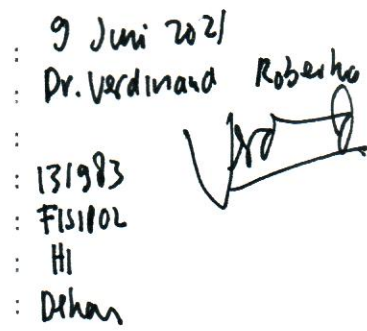 : 9 Juni 2021
: Dr. Verdinand Robertho
:
: 131983
: FISIP02
: HI
: Dekan